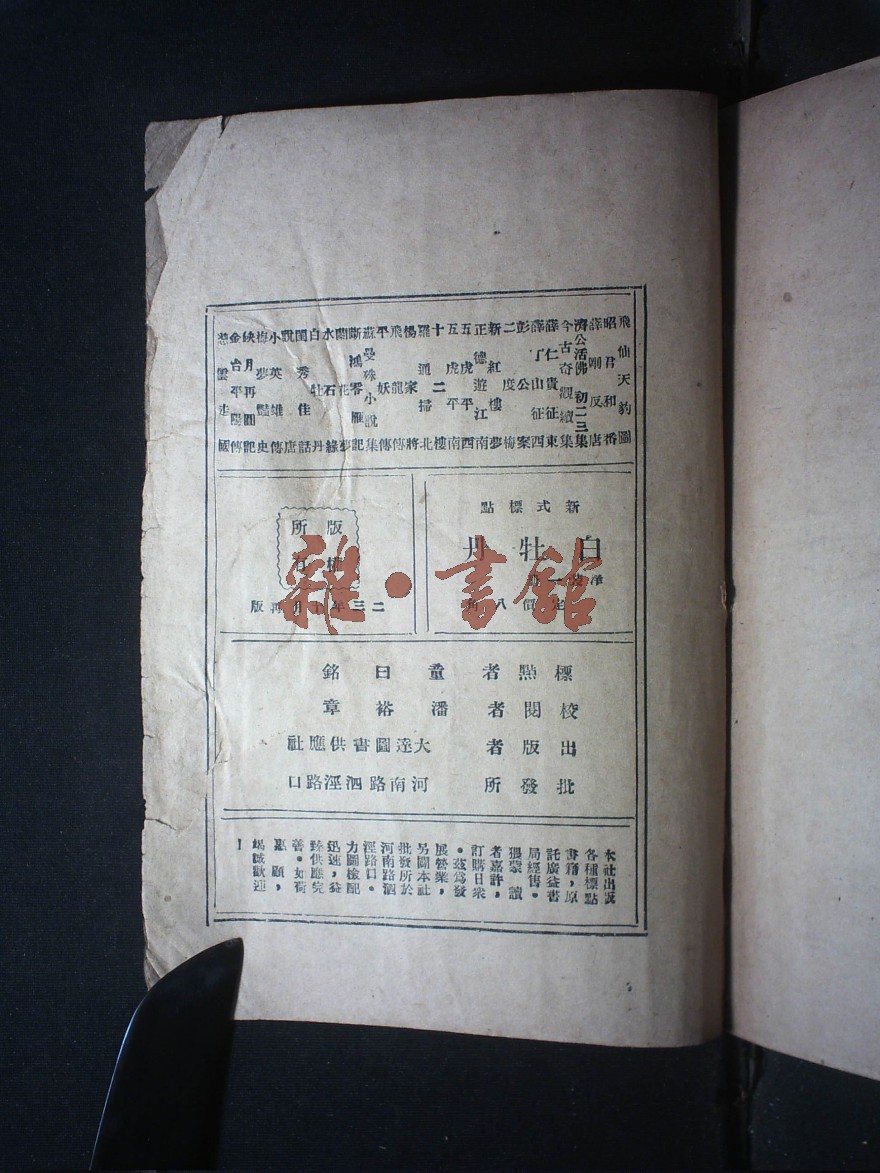 飛仙天豹圖
昭君和番
薛剛反唐
濟公活佛初二三集
今古奇觀續集
薛仁貴征東
薛丁山征西
彭公案
二度梅
新紅樓夢
正德遊江南
五虎平西
五虎平南
十二樓
羅通掃北
楊家將
飛龍傳
平妖傳
蘇曼殊小說集
斷鴻零雁記
花夢
水石緣
白牡丹
閨秀佳話
說唐
小英雄傳
梅夢豔史
缺月再圓記
金台平陽傳
雲走國
新式標點
白牡丹
洋裝一
定價八角
版權
所有
二三年十月再版
標點者 童曰銘
校閱者 潘裕章
出版者 大達圖書供應社
批發所 河南路泗涇路口
本社出版
各種標點
書籍，原
託廣益書
局經售。
猥蒙讀
者嘉許，
訂購日衆
。茲爲發
展營業，
另闢本社
批發所於
河南路泗
涇路口。
力圖檢配
迅速，益
臻供應完
善。如荷
惠顧，
竭誠歡迎
！
雜·書館